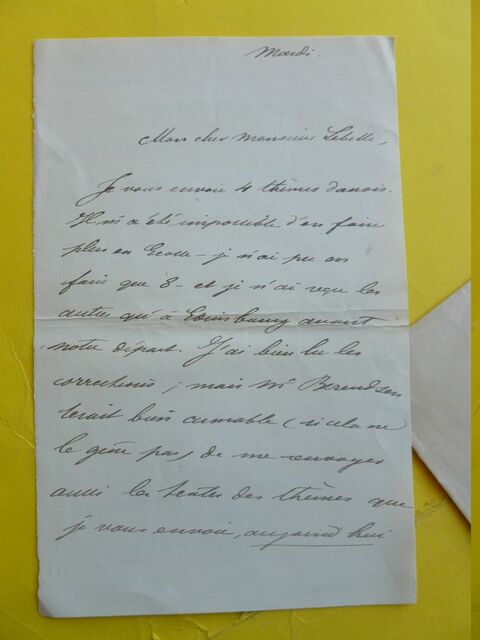 Mardi.
Mon cher Monsieur Lebelle,
Je vous envoie 4 thèmes danois.
Il m'a été impossible d'en faire
plus en Ecosse - je n'ai pu en
faire que 8 - et je n'ai reçu les
autres qu'à Edinsbourg avant
notre départ. J'ai bien lu les
corrections ; mais Mr Berendsen
serait bien aimable (si cela ne
le gêne pas) de me renvoyer
aussi les textes des thèmes que
je vous envoie, aujourd'hui